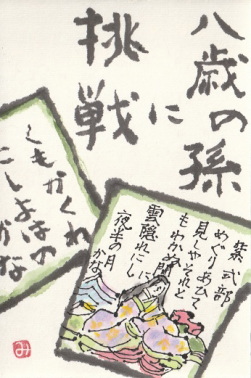 八歳の孫
に
挑戦
紫式部
めぐりあひて
見しやそれと
もわかぬ間に
雲隠れにし
夜半の月
かな
くもかくれ
にしよはの
つきかな
み